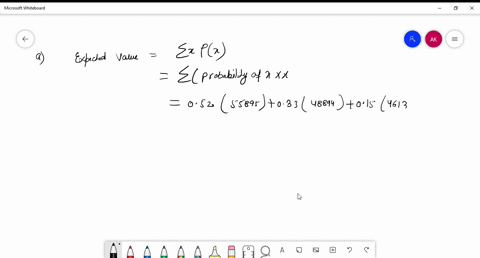 Microsoft Whiteboard
AK
a) Expected value = ∑x P(x)
= ∑(probability of x × x
= 0.52 (55895) + 0.33 (48894) + 0.15 (4613